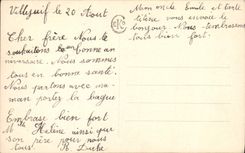 Villejuif le 20 Aout
Cher frère Nous te
souhaitons bonne an
niversaire. Nous sommes
tous en bonne santé.
Nous partons avec ma-
man porter la bague
Embrasse bien fort
Mlle Hélène ainsi que
son père pour nous
tous
Mon oncle Emile et tante
vous envoie le
bonjour. Nous t'embrassons
tous bien fort.